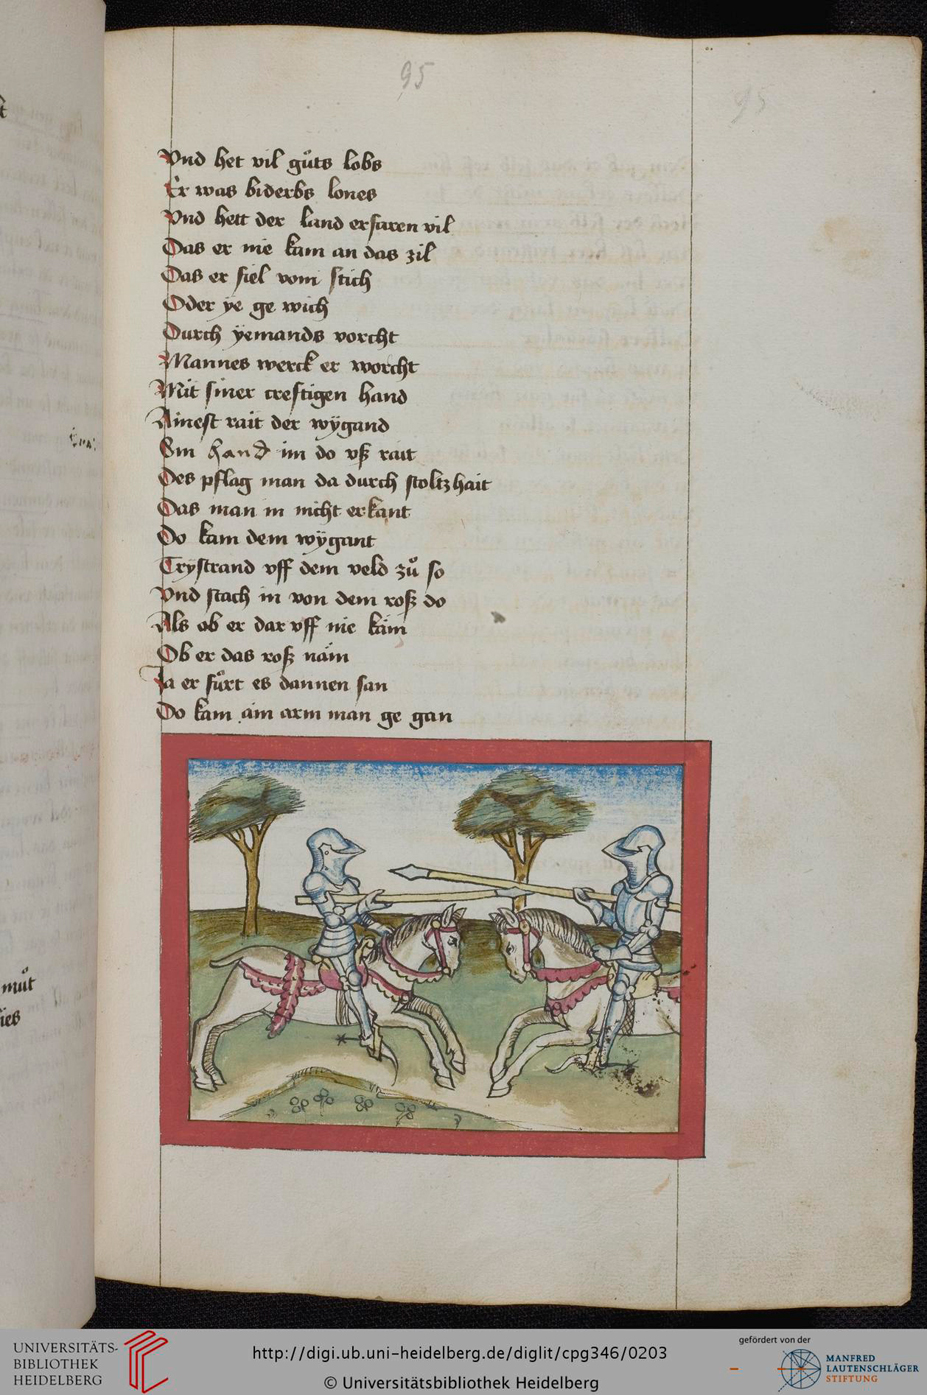 95
95
Vnd het vil gůts lobs
Er was biderbs lones
Vnd hett der land erfaren vil
Das er nie kam an das zil
Das er fiel vom stich
Oder ye ge wich
Durch ÿemands vorcht
Mannes werck er worcht
Mit siner creftigen hand
Ainest rait der wÿgand
Ein hand im do vß rait
Des pflag man da durch stoltzhait
Das man in nicht erkant
Do kam dem wÿgant
Trystrand vff dem veld zů so
Vnd stach in von dem roß do
Als ob er dar vff nie käm
Ob er das roß näm
Ja er fůrt es dannen san
Do kam ain arm man ge gan
můt
UNIVERSITÄTS-
BIBLIOTHEK
HEIDELBERG
http://digi.ub.uni-heidelberg.de/diglit/cpg346/0203
© Universitätsbibliothek Heidelberg
gefördert von der
MANFRED
LAUTENSCHLÄGER
STIFTUNG